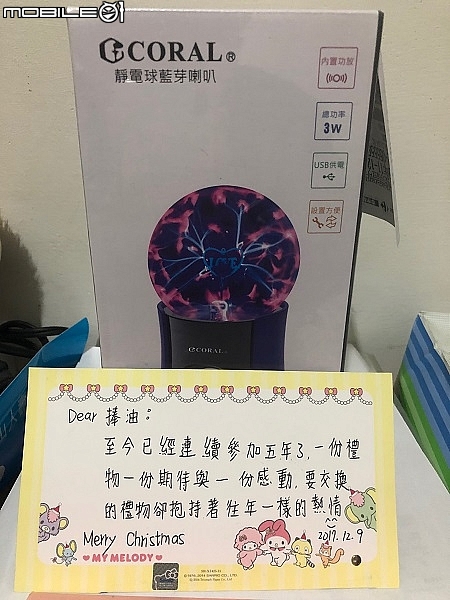 MOBILE01
CORAL®
靜電球藍芽喇叭
內置功放
總功率
3W
USB供電
設置方便
CORAL
Dear 捧油：
至今已經連續參加五年了,一份禮
物一份期待與一份感動,要交換
的禮物卻抱持著往年一樣的熱情
Merry Christmas
2017.12.9
MY MELODY